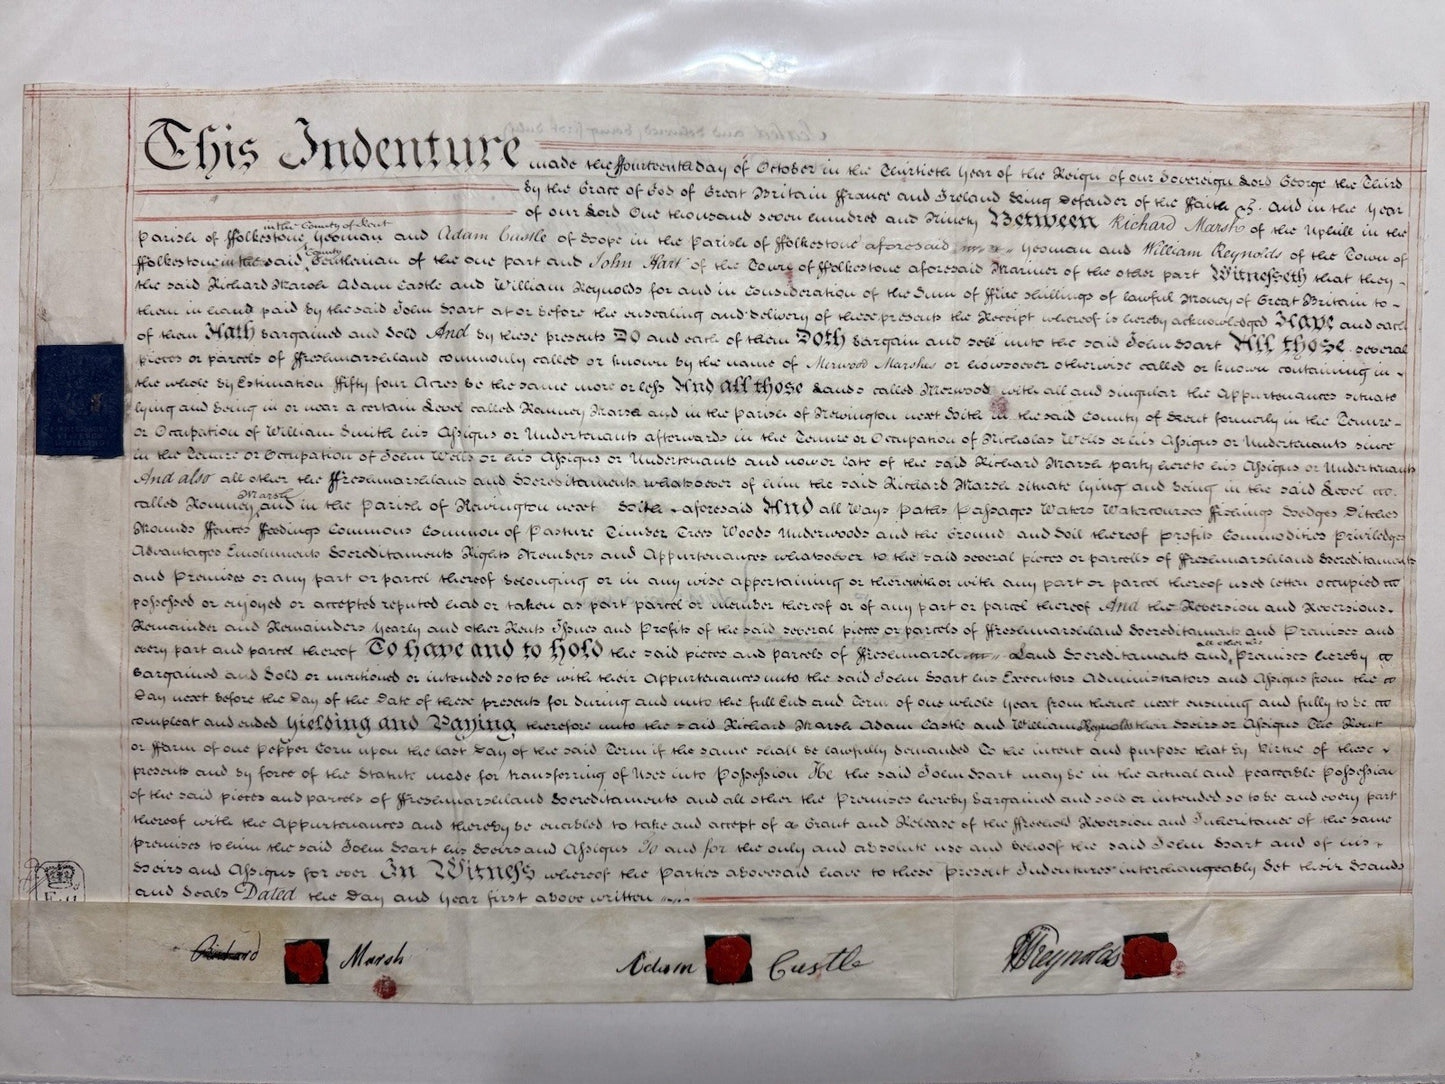 This Indenture made the ffourteenth day of October in the Thirtieth Year of the Reign of our Sovereign Lord George the Third
by the Grace of God of Great Britain ffrance and Ireland King defender of the ffaith &c. And in the Year
of our Lord One thousand seven hundred and Ninety Between Richard Marsh of the Uphill in the
in the County of Kent
Parish of ffolkestone Yeoman and Adam Castle of in the Parish of ffolkestone aforesaid Yeoman and William Reynolds of the Town of
County
ffolkestone in the said Gentleman of the one part and John Hart of the Town of ffolkestone aforesaid Mariner of the other part Witnesseth that they
the said Richard Marsh Adam Castle and William Reynolds for and in consideration of the Sum of ffive shillings of lawful Money of Great Britain to
them in hand paid by the said John Hart at or before the ensealing and delivery of these presents the Receipt whereof is hereby acknowledged Have and each
of them Hath bargained and sold And by these presents Do and each of them Doth bargain and sell unto the said John Hart All those several
pieces or parcels of ffreshmarshland commonly called or known by the name of Merwood Marshes or howsoever otherwise called or known containing in
the whole by Estimation ffifty four Acres be the same more or less And all those Lands called Merwood with all and singular the Appurtenances situate
lying and being in or near a certain Level called Romney Marsh and in the Parish of Newington next Hith in the said County of Kent formerly in the Tenure
or Occupation of William Smith his Assigns or Undertenants afterwards in the Tenure or Occupation of Nicholas Wells or his Assigns or Undertenants since
in the Tenure or Occupation of John Wells or his Assigns or Undertenants and now or late of the said Richard Marsh party hereto his Assigns or Undertenants
And also all other the ffreshmarshland and Hereditaments whatsoever of him the said Richard Marsh situate lying and being in the said Level
Marsh
called Romney and in the Parish of Newington next Hith aforesaid And all Ways Paths Passages Waters Watercourses ffishings Hedges Ditches
Mounds ffences ffeedings Commons Common of Pasture Timber Trees Woods Underwoods and the Ground and Soil thereof Profits Commodities Priviledges
Advantages Emoluments Hereditaments Rights Members and Appurtenances whatsoever to the said several pieces or parcels of ffreshmarshland Hereditaments
and Premises or any part or parcel thereof belonging or in any wise appertaining or therewith or with any part or parcel thereof used letten occupied
possessed or enjoyed or accepted reputed had or taken as part parcel or member thereof or of any part or parcel thereof And the Reversion and Reversions
Remainder and Remainders Yearly and other Rents Issues and Profits of the said several pieces or parcels of ffreshmarshland Hereditaments and Premises and
all other the
every part and parcel thereof To have and to hold the said pieces and parcels of ffreshmarsh Land Hereditaments and Premises hereby
bargained and sold or mentioned or intended so to be with their Appurtenances unto the said John Hart his Executors Administrators and Assigns from the
Day next before the Day of the Date of these presents for during and unto the full End and Term of one whole Year from thence next ensuing and fully to be
compleat and ended Yielding and Paying therefore unto the said Richard Marsh Adam Castle and William Reynolds their Heirs or Assigns The Rent
or ffarm of one Pepper Corn upon the last Day of the said Term if the same shall be lawfully demanded To the intent and purpose that by Virtue of these
presents and by force of the Statute made for transferring of Uses into Possession He the said John Hart may be in the actual and peaceable Possession
of the said pieces and parcels of ffreshmarshland Hereditaments and all other the Premises hereby bargained and sold or intended so to be and every part
thereof with the Appurtenances and thereby be enabled to take and accept of a Grant and Release of the ffreehold Reversion and Inheritance of the same
premises to him the said John Hart his Heirs and Assigns To and for the only and absolute use and behoof of the said John Hart and of his
Heirs and Assigns for ever In Witness whereof the Parties abovesaid have to these Present Indentures interchangeably Set their Hands
and Seals Dated the Day and Year first above written
Richard Marsh Adam Castle WReynolds